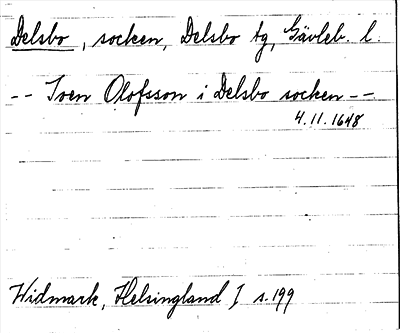 Delsbo, socken, Delsbo tg, Gävleb. l.
-- Sven Olofsson i Delsbo socken --
4.11.1648
Widmark, Helsingland I s. 199